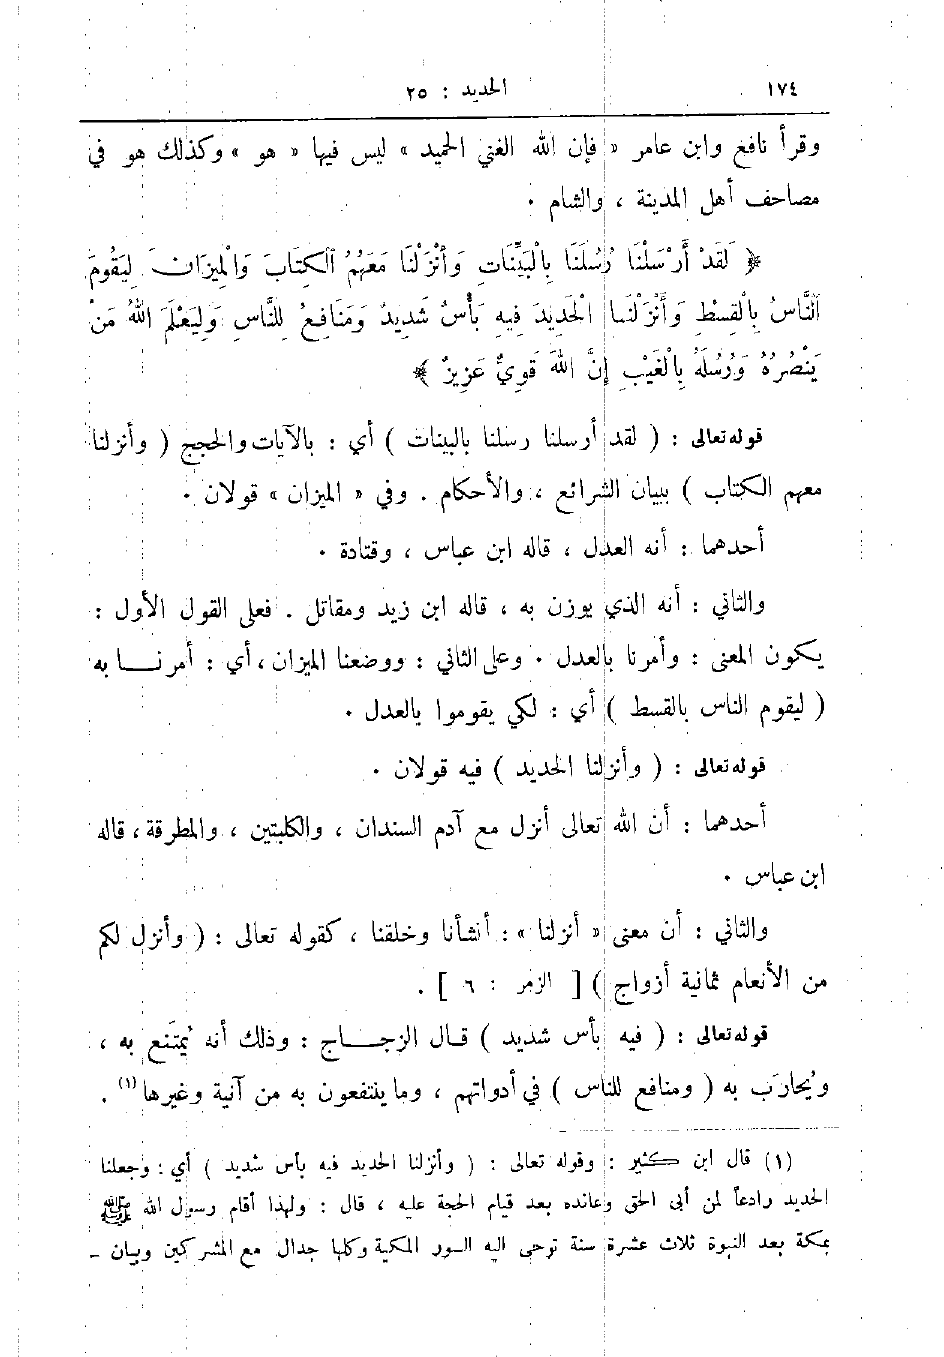 ١٧٤ الحديد : ٢٥
وقرأ نافع وابن عامر « فإن الله الغني الحميد » ليس فيها « هو » وكذلك هو في
مصاحف أهل المدينة ، والشام .
﴿ لَقَدْ أَرْسَلْنَا رُسُلَنَا بِالْبَيِّنَاتِ وَأَنْزَلْنَا مَعَهُمُ الْكِتَابَ وَالْمِيزَانَ لِيَقُومَ
النَّاسُ بِالْقِسْطِ وَأَنْزَلْنَا الْحَدِيدَ فِيهِ بَأْسٌ شَدِيدٌ وَمَنَافِعُ لِلنَّاسِ وَلِيَعْلَمَ اللهُ مَنْ
يَنْصُرُهُ وَرُسُلَهُ بِالْغَيْبِ إِنَّ اللهَ قَوِيٌّ عَزِيزٌ ﴾
قوله تعالى : ( لقد أرسلنا رسلنا بالبينات ) أي : بالآيات والحجج ( وأنزلنا
معهم الكتاب ) ببيان الشرائع ، والأحكام . وفي « الميزان » قولان .
أحدهما : أنه العدل ، قاله ابن عباس ، وقتادة .
والثاني : أنه الذي يوزن به ، قاله ابن زيد ومقاتل . فعلى القول الأول :
يكون المعنى : وأمرنا بالعدل . وعلى الثاني : ووضعنا الميزان ، أي : أمرنا به
( ليقوم الناس بالقسط ) أي : لكي يقوموا بالعدل .
قوله تعالى : ( وأنزلنا الحديد ) فيه قولان .
أحدهما : أن الله تعالى أنزل مع آدم السندان ، والكلبتين ، والمطرقة ، قاله
ابن عباس .
والثاني : أن معنى « أنزلنا » : أنشأنا وخلقنا ، كقوله تعالى : ( وأنزل لكم
من الأنعام ثمانية أزواج ) [ الزمر : ٦ ] .
قوله تعالى : ( فيه بأس شديد ) قال الزجاج : وذلك أنه يُمتَنع به ،
ويُحارَب به ( ومنافع للناس ) في أدواتهم ، وما ينتفعون به من آنية وغيرها (١) .
(١) قال ابن كثير : وقوله تعالى : ( وأنزلنا الحديد فيه بأس شديد ) أي : وجعلنا
الحديد رادعاً لمن أبى الحق وعانده بعد قيام الحجة عليه ، قال : ولهذا أقام رسول الله ﷺ
بمكة بعد النبوة ثلاث عشرة سنة توحى اليه السور المكية وكلها جدال مع المشركين وبيان -